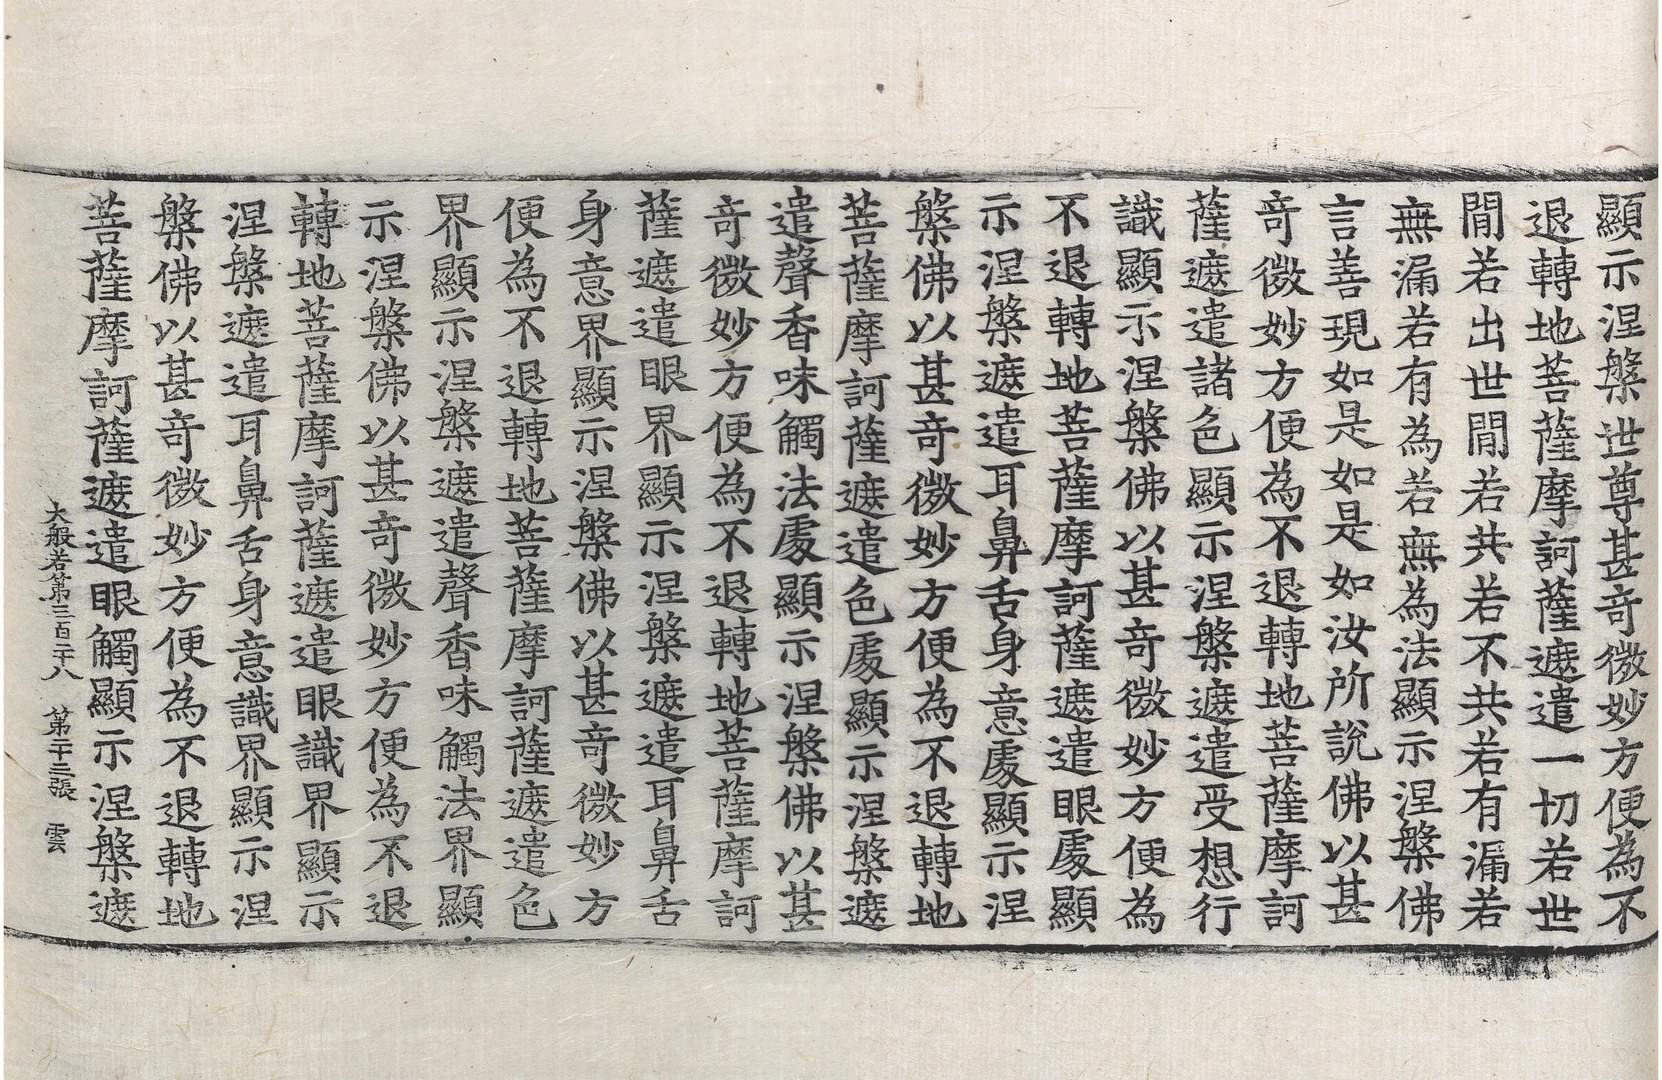 顯示涅槃世尊甚奇微妙方便為不
退轉地菩薩摩訶薩遮遣一切若世
閒若出世閒若共若不共若有漏若
無漏若有為若無為法顯示涅槃佛
言善現如是如是如汝所說佛以甚
奇微妙方便為不退轉地菩薩摩訶
薩遮遣諸色顯示涅槃遮遣受想行
識顯示涅槃佛以甚奇微妙方便為
不退轉地菩薩摩訶薩遮遣眼處顯
示涅槃遮遣耳鼻舌身意處顯示涅
槃佛以甚奇微妙方便為不退轉地
菩薩摩訶薩遮遣色處顯示涅槃遮
遣聲香味觸法處顯示涅槃佛以甚
奇微妙方便為不退轉地菩薩摩訶
薩遮遣眼界顯示涅槃遮遣耳鼻舌
身意界顯示涅槃佛以甚奇微妙方
便為不退轉地菩薩摩訶薩遮遣色
界顯示涅槃遮遣聲香味觸法界顯
示涅槃佛以甚奇微妙方便為不退
轉地菩薩摩訶薩遮遣眼識界顯示
涅槃遮遣耳鼻舌身意識界顯示涅
槃佛以甚奇微妙方便為不退轉地
菩薩摩訶薩遮遣眼觸顯示涅槃遮
大般若第三百二十八 第二十三張 雲